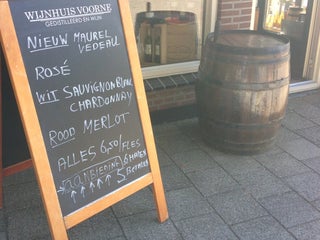 WIJNHUIS VOORNE
GEDISTILLEERD EN WIJN
NIEUW MAUREL
VEDEAU
ROSÉ
WIT SAUVIGNON BLANC
CHARDONNAY
ROOD MERLOT
ALLES 6,50/FLES
AANBIEDING 6 HALEN
5 BETALEN